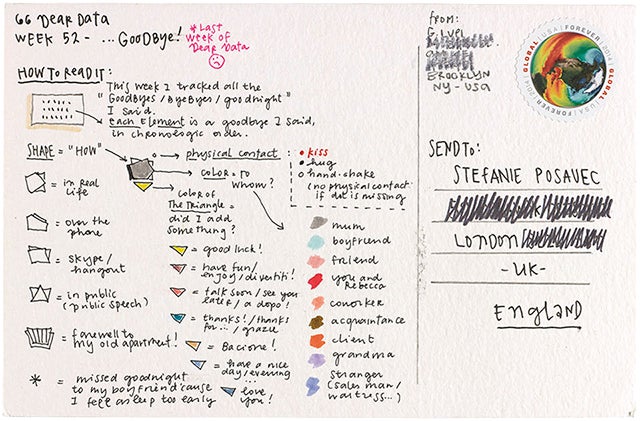 66 DEAR DATA
WEEK 52 - ... GOODBYE!
* LAST
WEEK OF
DEAR DATA
HOW TO READ IT:
This week I tracked all the
"GOODBYES / BYEBYES / goodnight"
I said.
Each Element is a goodbye I said,
in chronologic order.
SHAPE = "HOW"
= in real
life
= over the
phone
= skype/
hangout
= in public
(public speech)
= farewell to
my old apartment!
* = missed goodnight
to my boyfriend 'cause
I fell asleep too early
physical contact:
• kiss
• hug
o hand-shake
(no physical contact
if dot is missing
COLOR = TO
WHOM?
COLOR OF
The TRIANGLE =
did I add
something?
= good luck!
= have fun/
enjoy/divertiti!
= talk soon/see you
later/a dopo!
= thanks!/thanks
for.../grazie
= Bacione!
= have a nice
day/evening
...
= love
you!
mum
boyfriend
friend
you and
Rebecca
coworker
acquaintance
client
grandma
stranger
(sales man/
waitress...)
FROM:
G. LUPI
BROOKLYN
NY - USA
GLOBAL USA FOREVER 2014
SEND TO:
STEFANIE POSAVEC
LONDON
-UK-
ENGLAND